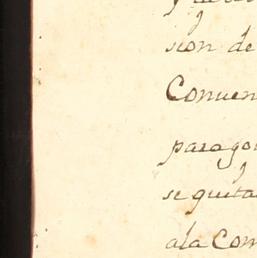 y
sion de
Conuen
paragon
se quita
ala Com